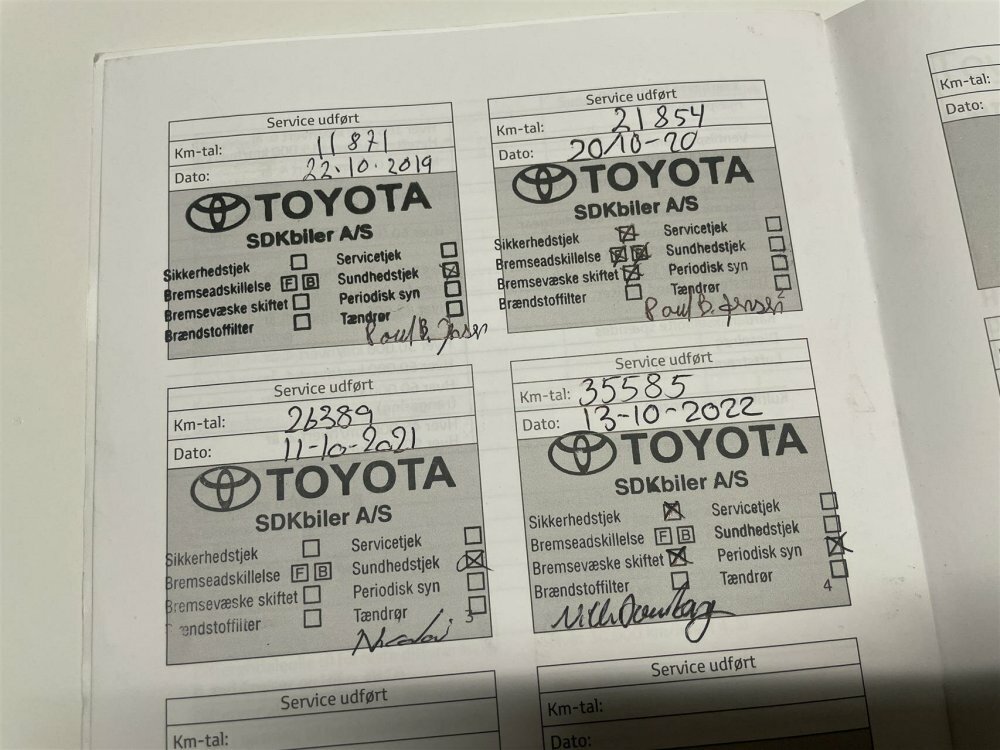 Service udført
Km-tal: 11 871
Dato: 22-10-2019
TOYOTA
SDKbiler A/S
Sikkerhedstjek
Servicetjek
Bremseadskillelse F B
Sundhedstjek
Bremsevæske skiftet
Periodisk syn
Brændstoffilter
Tændrør
Poul B. Jensen
Service udført
Km-tal: 21854
Dato: 20/10-20
TOYOTA
SDKbiler A/S
Sikkerhedstjek
Servicetjek
Bremseadskillelse F B
Sundhedstjek
Bremsevæske skiftet
Periodisk syn
Brændstoffilter
Tændrør
2
Poul B. Jensen
Service udført
Km-tal: 26389
Dato: 11-10-2021
TOYOTA
SDKbiler A/S
Sikkerhedstjek
Servicetjek
Bremseadskillelse F B
Sundhedstjek
Bremsevæske skiftet
Periodisk syn
Brændstoffilter
Tændrør
3
Nicolai
Service udført
Km-tal: 35585
Dato: 13-10-2022
TOYOTA
SDKbiler A/S
Sikkerhedstjek
Servicetjek
Bremseadskillelse F B
Sundhedstjek
Bremsevæske skiftet
Periodisk syn
Brændstoffilter
Tændrør
4
Service udført
Km-tal:
Service udført
Km-tal:
Dato:
Km-tal:
Dato: